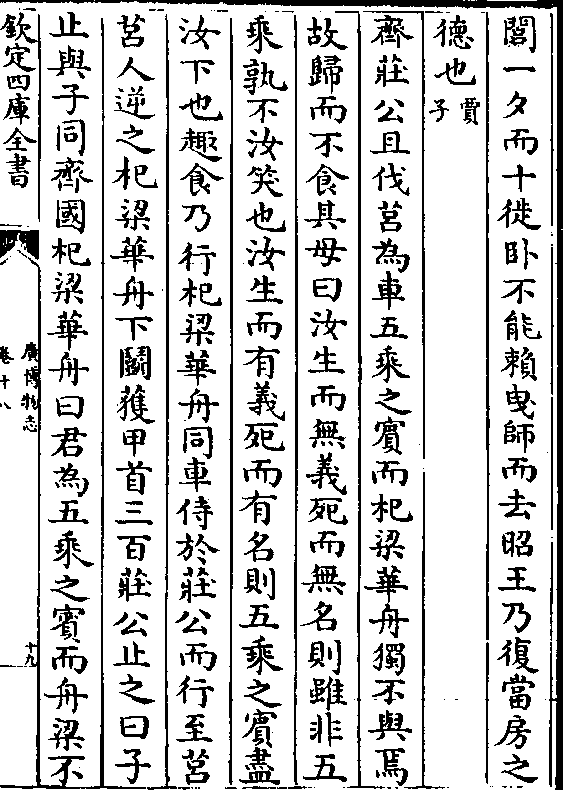 闔一夕而十徙卧不能賴曳師而去昭王乃復當房之
德也賈子
齊莊公且伐莒為車五乘之賓而杞梁華舟獨不與焉
故歸而不食其母曰汝生而無義死而無名則雖非五
乘孰不汝笑也汝生而有義死而有名則五乘之賓盡
汝下也趣食乃行杞梁華舟同車侍於莊公而行至莒
莒人逆之杞梁華舟下鬬獲甲首三百莊公止之曰子
止與子同齊國杞梁華舟曰君為五乘之賓而舟梁不
欽定四庫全書
廣博物志
卷十八
十九